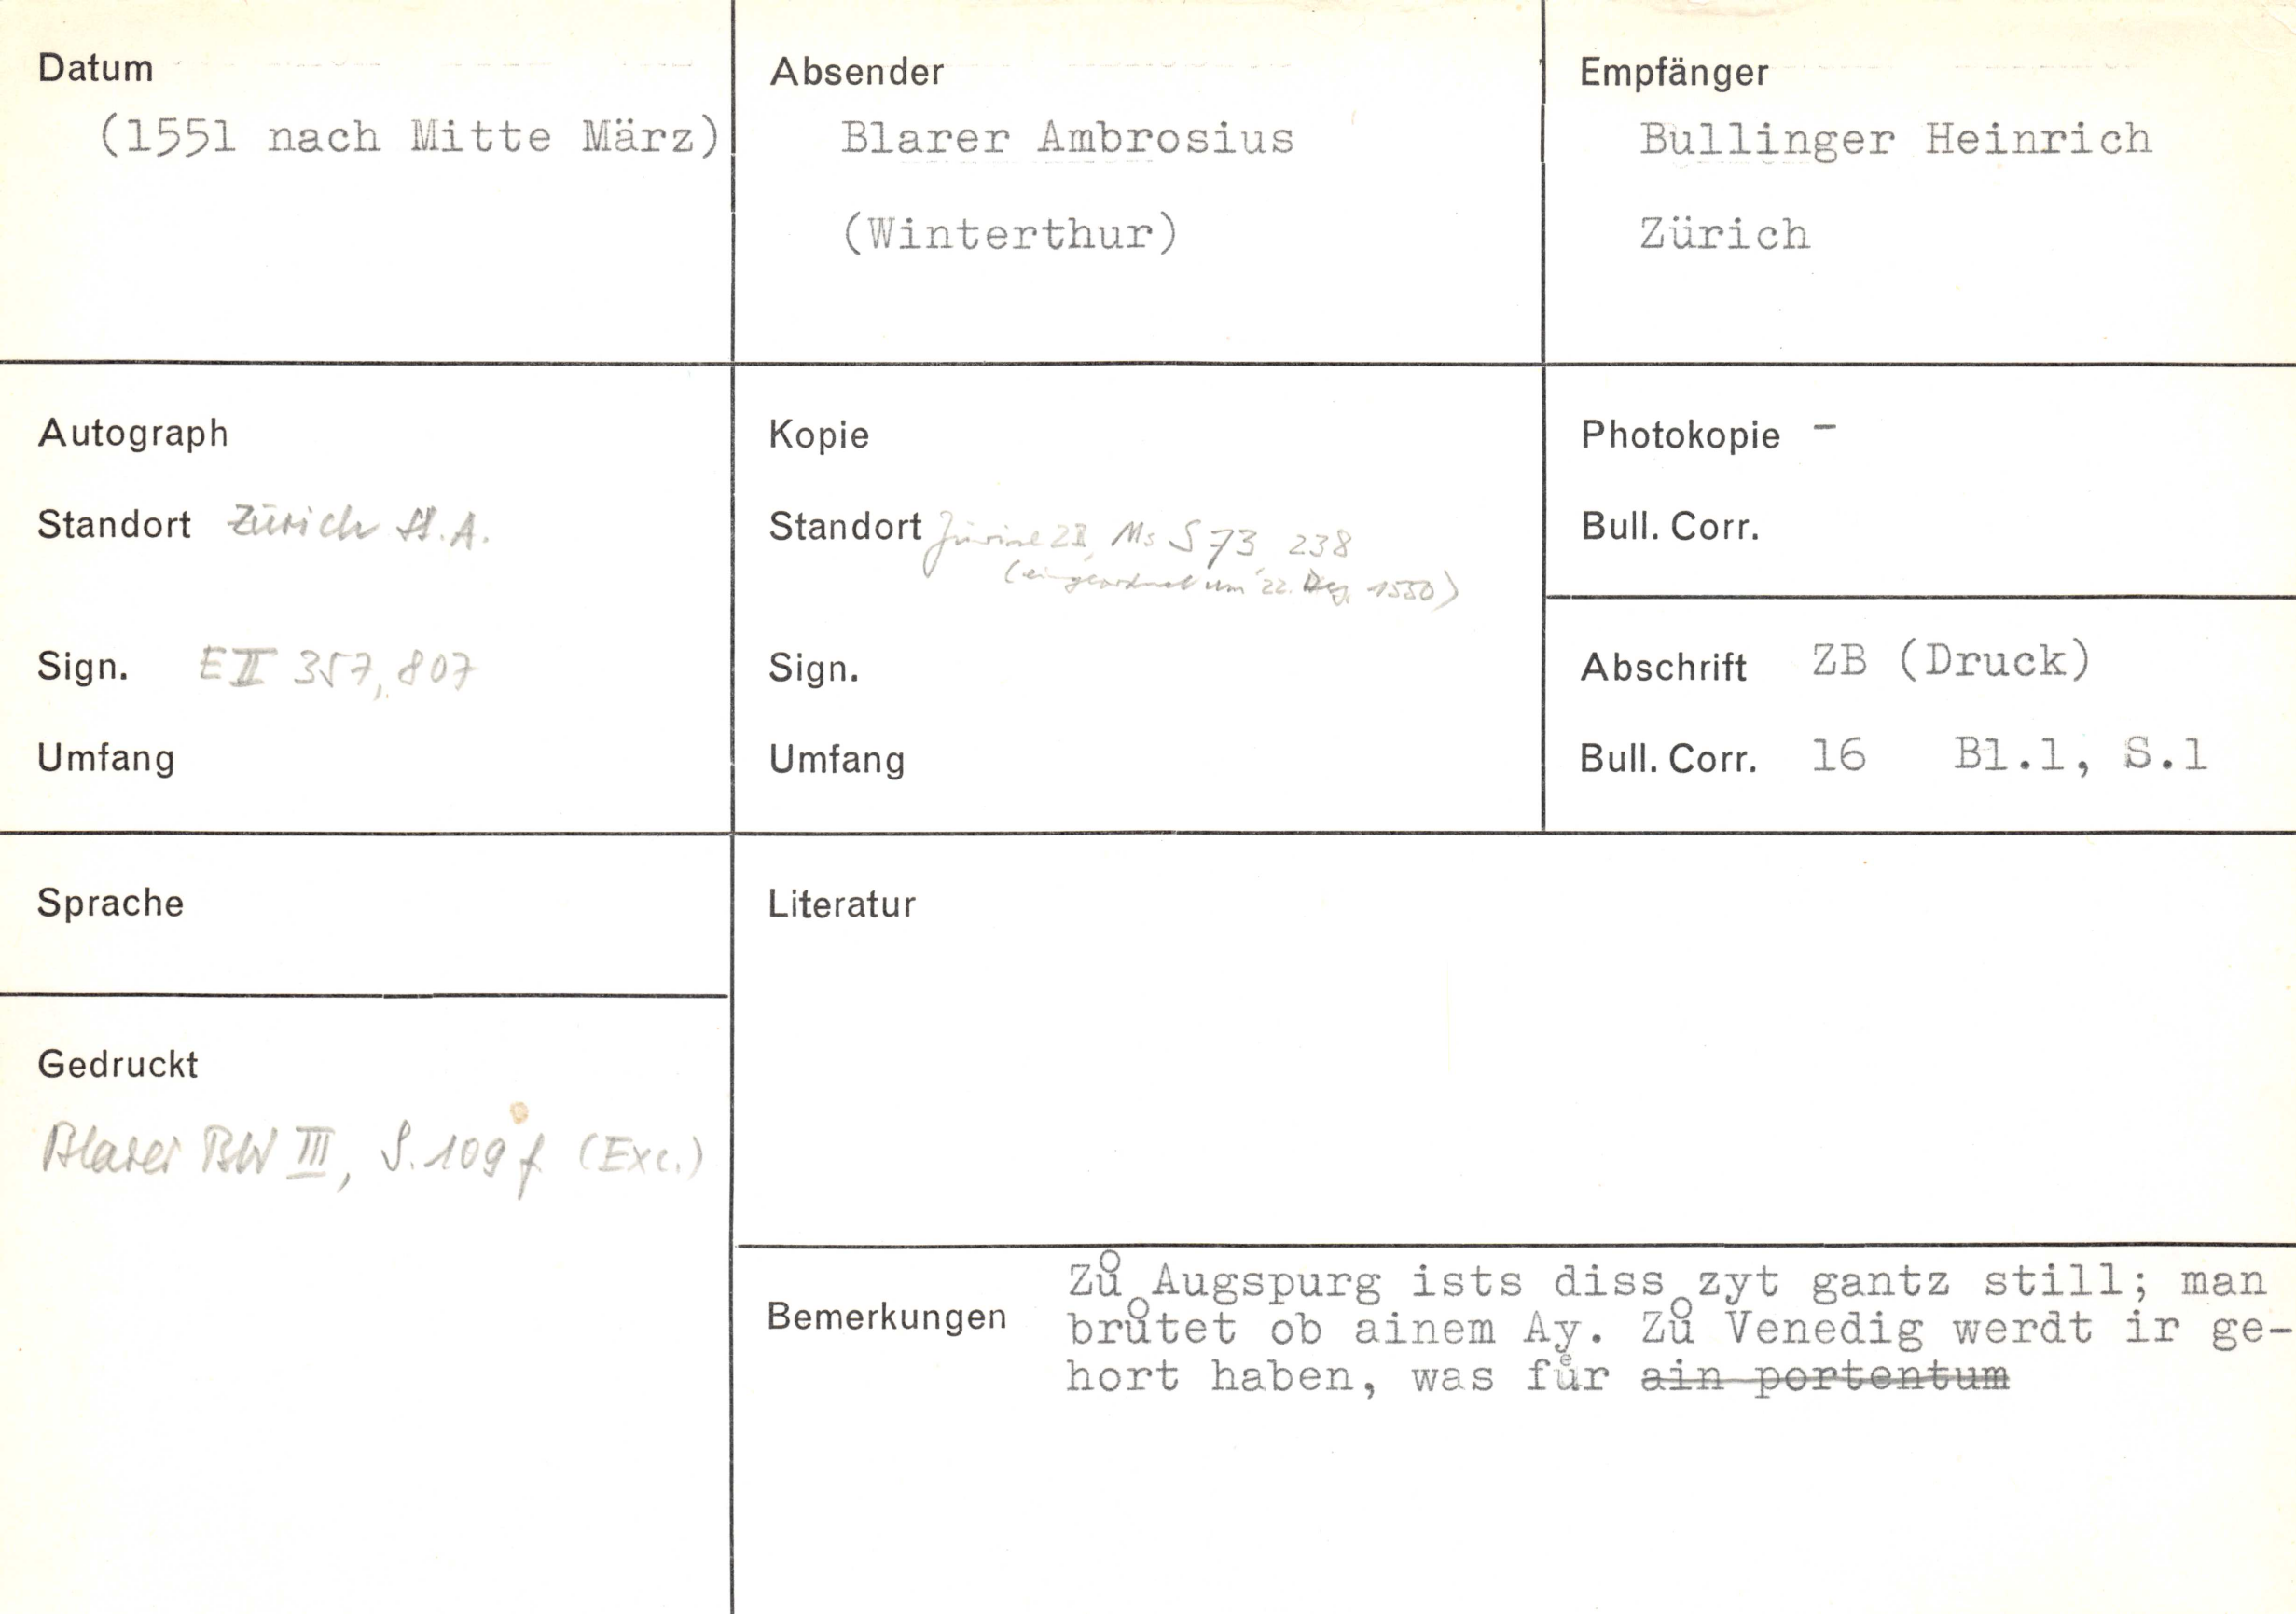 Datum
(1551 nach Mitte März)
Absender
Blarer Ambrosius
(Winterthur)
Empfänger
Bullinger Heinrich
Zürich
Autograph
Standort Zürich St.A.
Sign. E II 357, 807
Umfang
Kopie
Standort Zürich ZB, Ms S 73, 238
(eingeordnet um 22. Dez. 1550)
Sign.
Umfang
Photokopie -
Bull. Corr.
Abschrift ZB (Druck)
Bull. Corr. 16 Bl.1, S.1
Sprache
Gedruckt
Blarer BW III, S. 109 f (Exc.)
Literatur
Bemerkungen
Zů Augspurg ists diss zyt gantz still; man
brůtet ob ainem Ay. Zů Venedig werdt ir ge-
hort haben, was fuͤr ain portentum